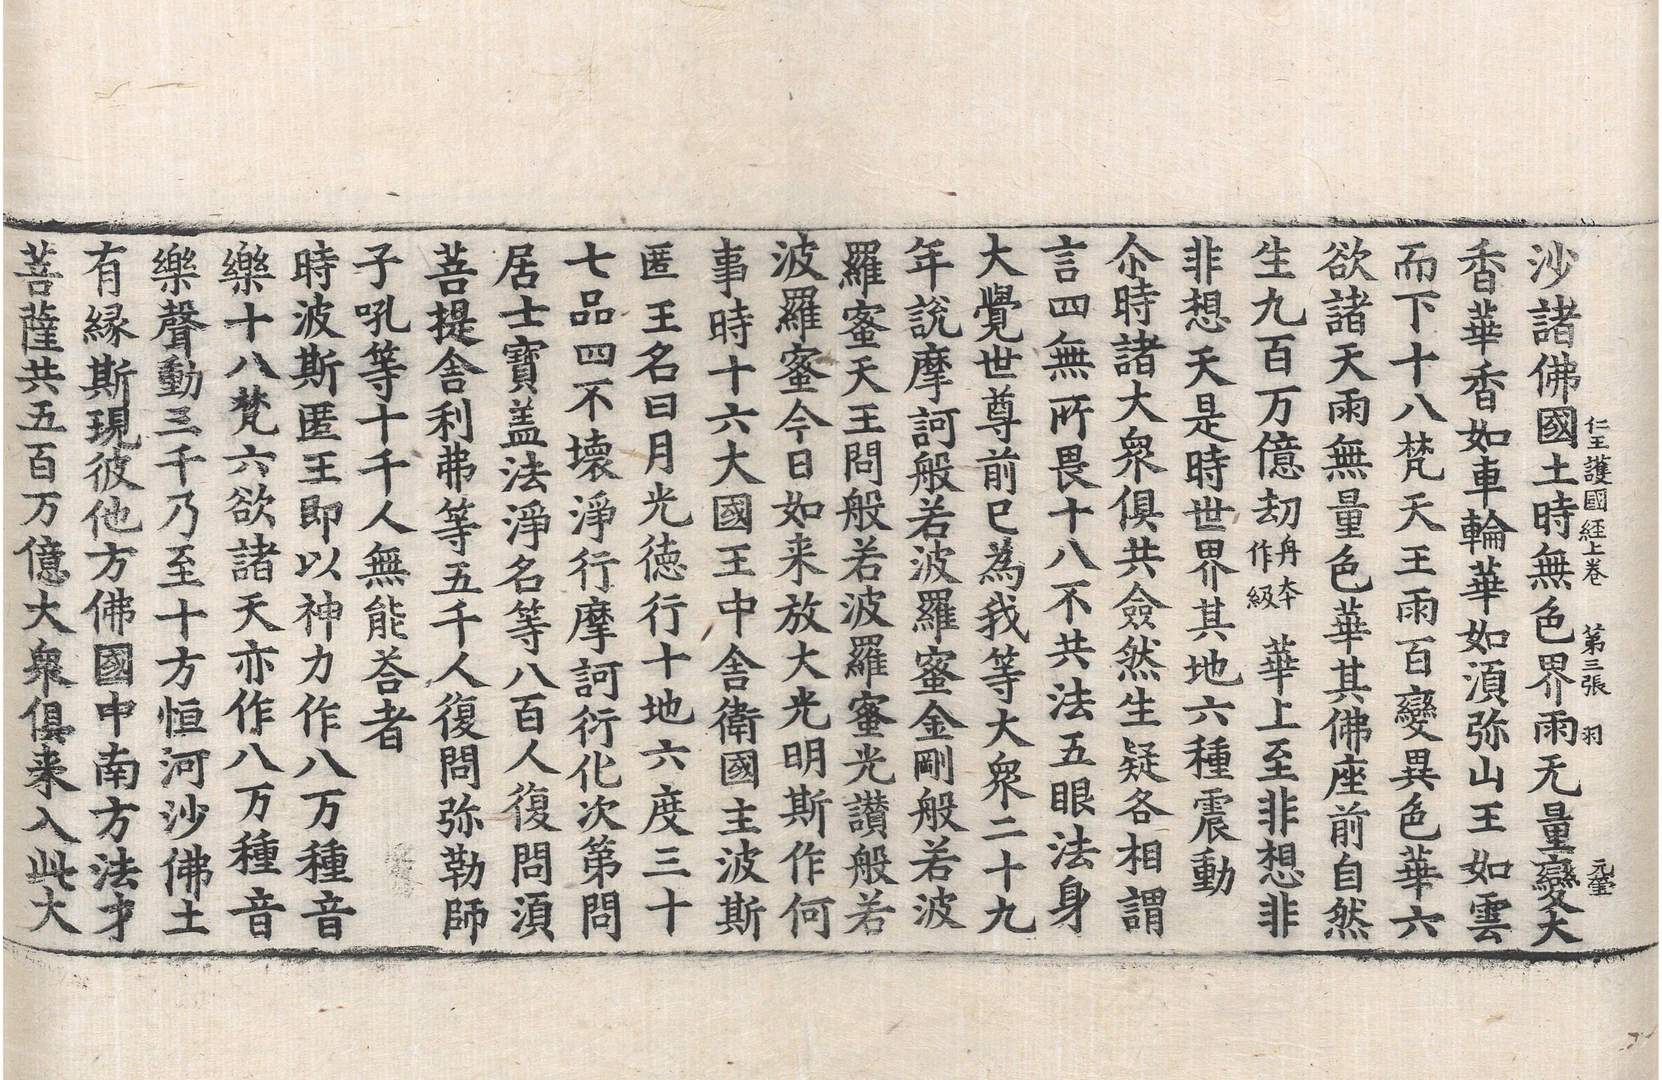 仁王護國經上卷 第三張 羽 元
沙諸佛國土時無色界雨无量變大
香華香如車輪華如湏弥山王如雲
而下十八梵天王雨百變異色華六
欲諸天雨無量色華其佛座前自然
生九百万億劫丹夲作級華上至非想非
非想天是時世界其地六種震動
尒時諸大衆俱共僉然生疑各相謂
言四無所畏十八不共法五眼法身
大覺世尊前已為我等大衆二十九
年說摩訶般若波羅蜜金剛般若波
羅蜜天王問般若波羅蜜光讃般若
波羅蜜今日如来放大光明斯作何
事時十六大國王中舍衛國主波斯
匿王名曰月光德行十地六度三十
七品四不壞淨行摩訶衍化次第問
居士寶盖法淨名等八百人復問湏
菩提舍利弗等五千人復問弥勒師
子吼等十千人無能荅者
時波斯匿王即以神力作八万種音
樂十八梵六欲諸天亦作八万種音
樂聲動三千乃至十方恒河沙佛土
有縁斯現彼他方佛國中南方法才
菩薩共五百万億大衆俱来入此大